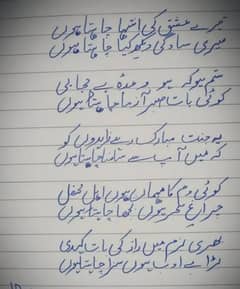 ترے عشق کی انتہا چاہتا ہوں
میری سادگی دیکھ کیا چاہتا ہوں
ستم ہو کہ ہو وعدہ بے حجابی
کوئی بات صبر آزما چاہتا ہوں
یہ جنت مبارک رہے زاہدوں کو
کہ میں آپ سے سامنا چاہتا ہوں
کوئی دم کا مہماں ہوں اہل محفل
چراغ سحر ہوں بجھا چاہتا ہوں
بھری بزم میں راز کی بات کہدی
بڑا بے ادب ہوں سزا چاہتا ہوں